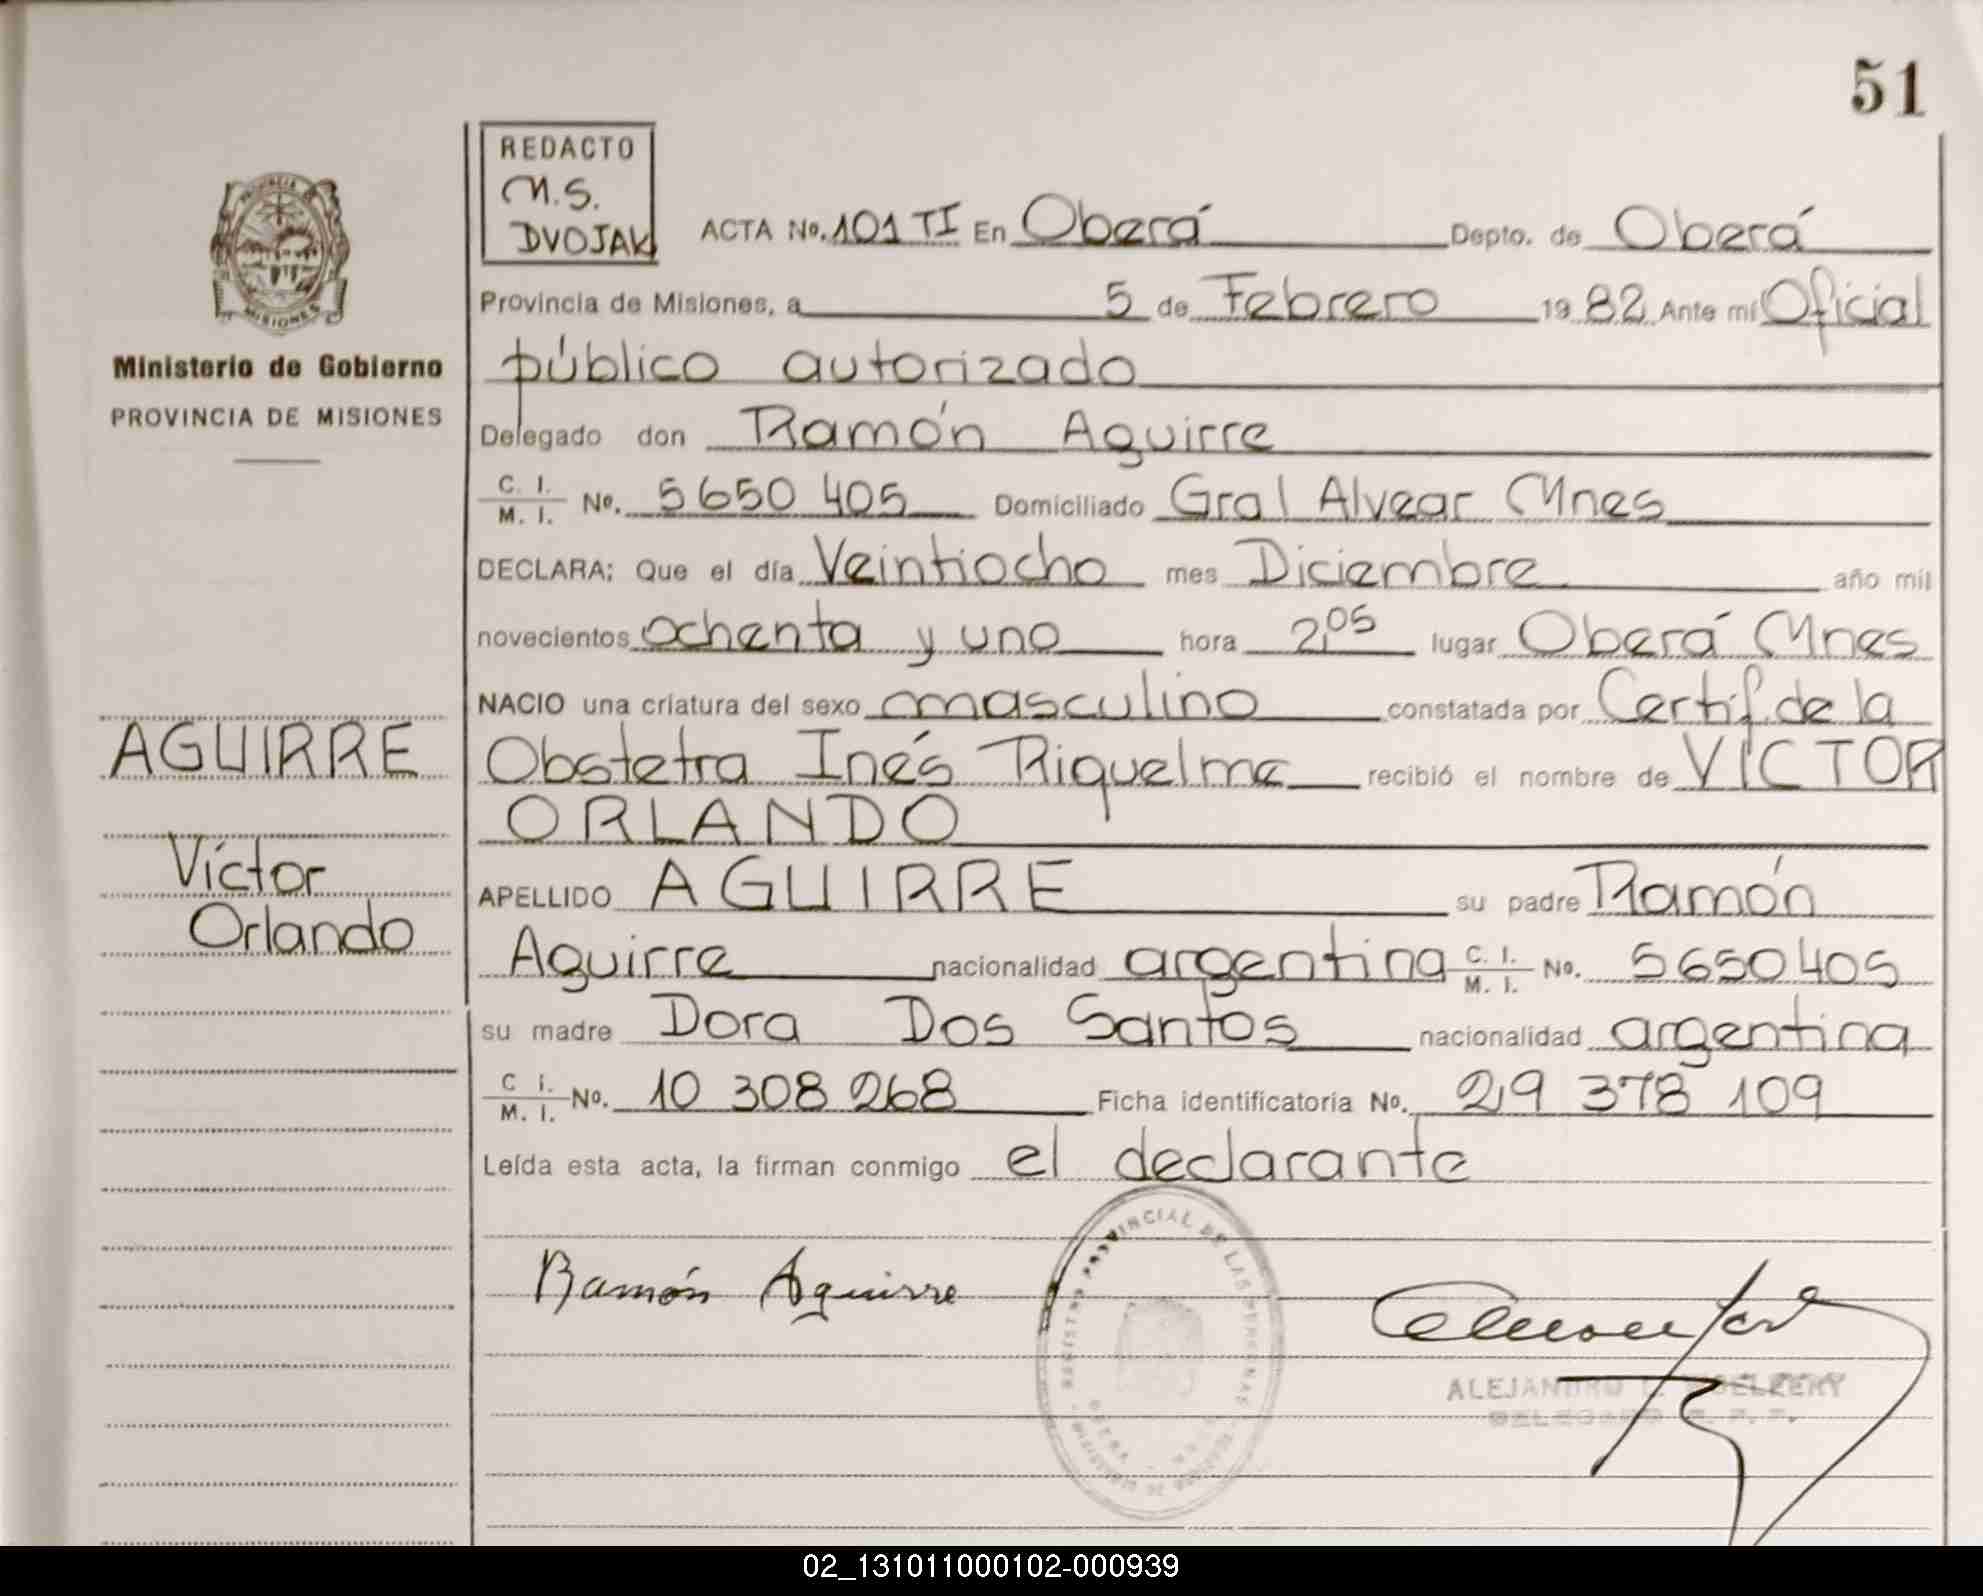 51
REDACTO
M.S.
DVOJAK
ACTA No. 101 TI En Oberá Depto. de Oberá
Provincia de Misiones, a 5 de Febrero 1982 Ante mí Oficial
público autorizado
Delegado don Ramón Aguirre
C. I. / M. I. No. 5650 405 Domiciliado Gral Alvear Mnes
DECLARA: Que el día Veintiocho mes Diciembre año mil
novecientos ochenta y uno hora 2,05 lugar Oberá Mnes
NACIO una criatura del sexo masculino constatada por Certif. de la
Obstetra Inés Riquelme recibió el nombre de VICTOR
ORLANDO
APELLIDO AGUIRRE su padre Ramón
Aguirre nacionalidad argentina C. I. / M. I. No. 5650405
su madre Dora Dos Santos nacionalidad argentina
C. I. / M. I. No. 10 308 268 Ficha identificatoria No. 29 378 109
Leída esta acta, la firman conmigo el declarante
Ramón Aguirre
PROVINCIA
MISIONES
Ministerio de Gobierno
PROVINCIA DE MISIONES
AGUIRRE
Víctor
Orlando
REGISTRO PROVINCIAL DE LAS PERSONAS
ALEJANDRO
DELEGADO
02_131011000102-000939